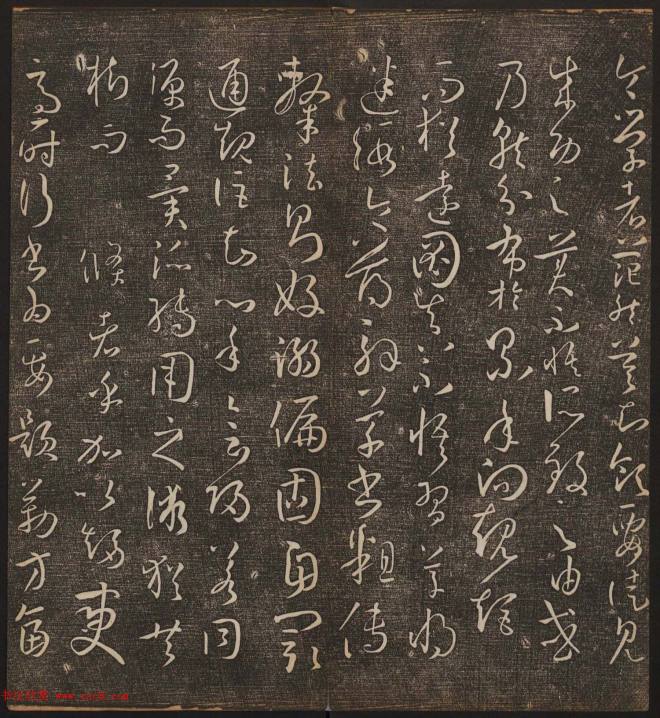 令學者茫然莫知領要徒見
成功之美不悟所致之由或
乃就分布於累年向規矩
而猶遠圖真不悟習草將
迷假令薄解草書粗傳
隸法則好溺偏固自閡
通規詎知心手會歸若同
源而異派轉用之術猶共
樹而 條者乎加以趨變
適時行書為要題勒方畐
书法欣赏